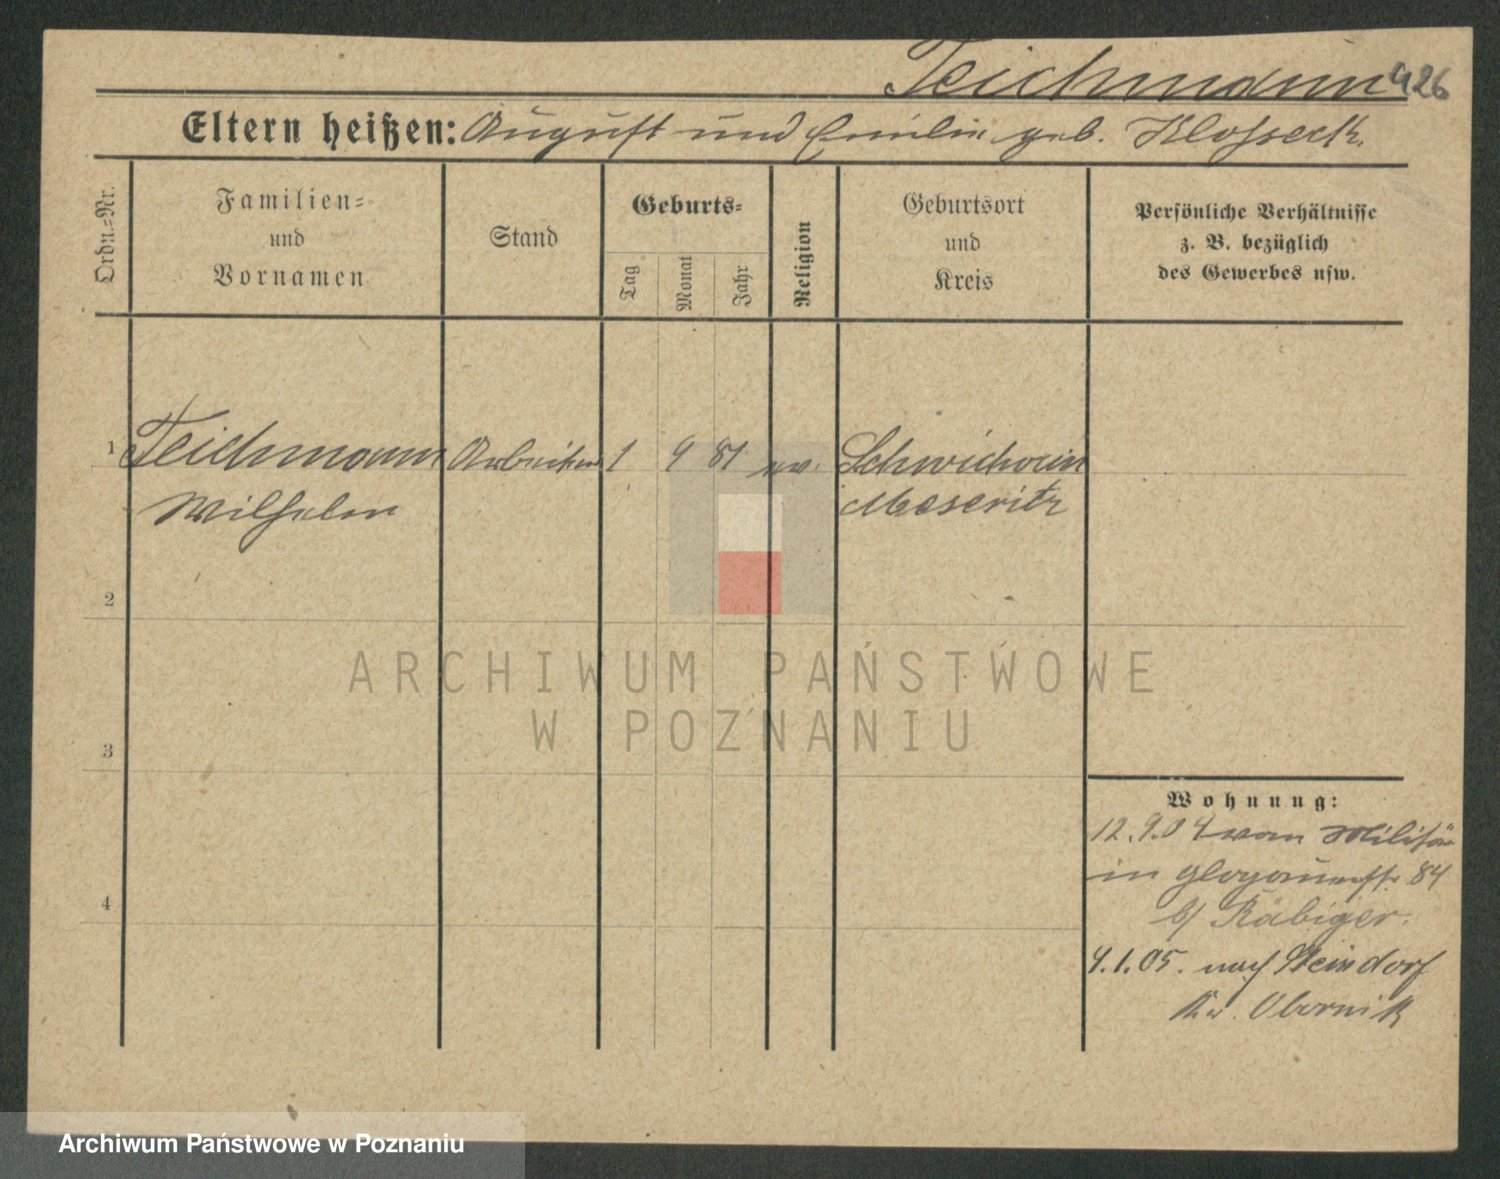 Teichmann 426
Eltern heißen: August und Emilie geb. Klosseck.
Ordn.=Nr.
Familien=
und
Vornamen
Stand
Geburts=
Tag
Monat
Jahr
Religion
Geburtsort
und
Kreis
Persönliche Verhältnisse
z. B. bezüglich
des Gewerbes usw.
1 Teichmann Arbeiter 1 9 81 ev. Schwichocin
Wilhelm Meseritz
2
ARCHIWUM PAŃSTWOWE
W POZNANIU
3
Wohnung:
12.9.04 vom Militär
in Glogauerstr 84
b/ Räbiger.
4
4.1.05. nach Steindorf
Kr. Obornik
Archiwum Państwowe w Poznaniu